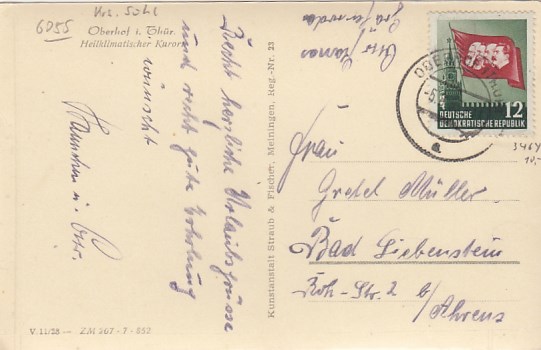 6055
Krs. Suhl
Oberhof i. Thür.
Heilklimatischer Kurort
Recht herzliche Urlaubsgrüsse
und recht gute Erholung
wünscht
Otto
Kunstanstalt Straub & Fischer, Meiningen, Reg.-Nr. 23
OBERHOF
12
DEUTSCHE
DEMOKRATISCHE REPUBLIK
a
346Y
10,-
Frau
Gretel Müller
Bad Liebenstein
Str. 2 b/
Ahrens
V.11/28 — ZM 267 - 7 - 852